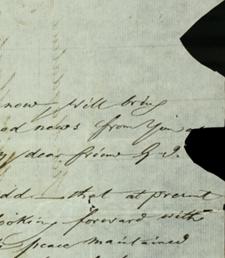 now, will bring
news from you
dear friend G. J.
add that at present
looking forward with
peace maintained